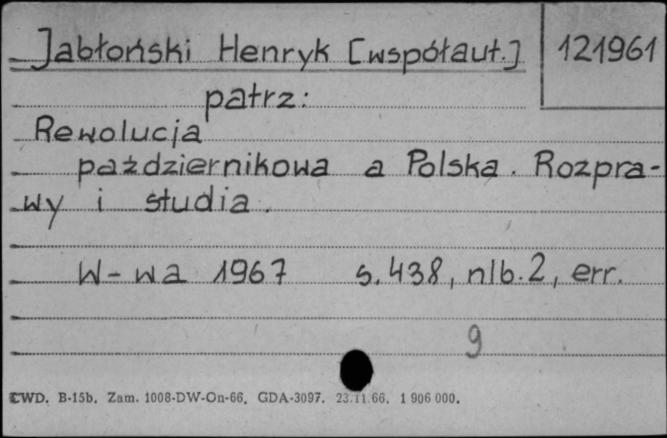 Jabłoński Henryk [współaut.] 121961
patrz:
Rewolucja
październikowa a Polska. Rozpra-
wy i studia.
W-wa 1967 s. 438, nlb. 2, err.
9
CWD. B-15b. Zam. 1008-DW-On-66. GDA-3097. 23.11.66. 1 906 000.